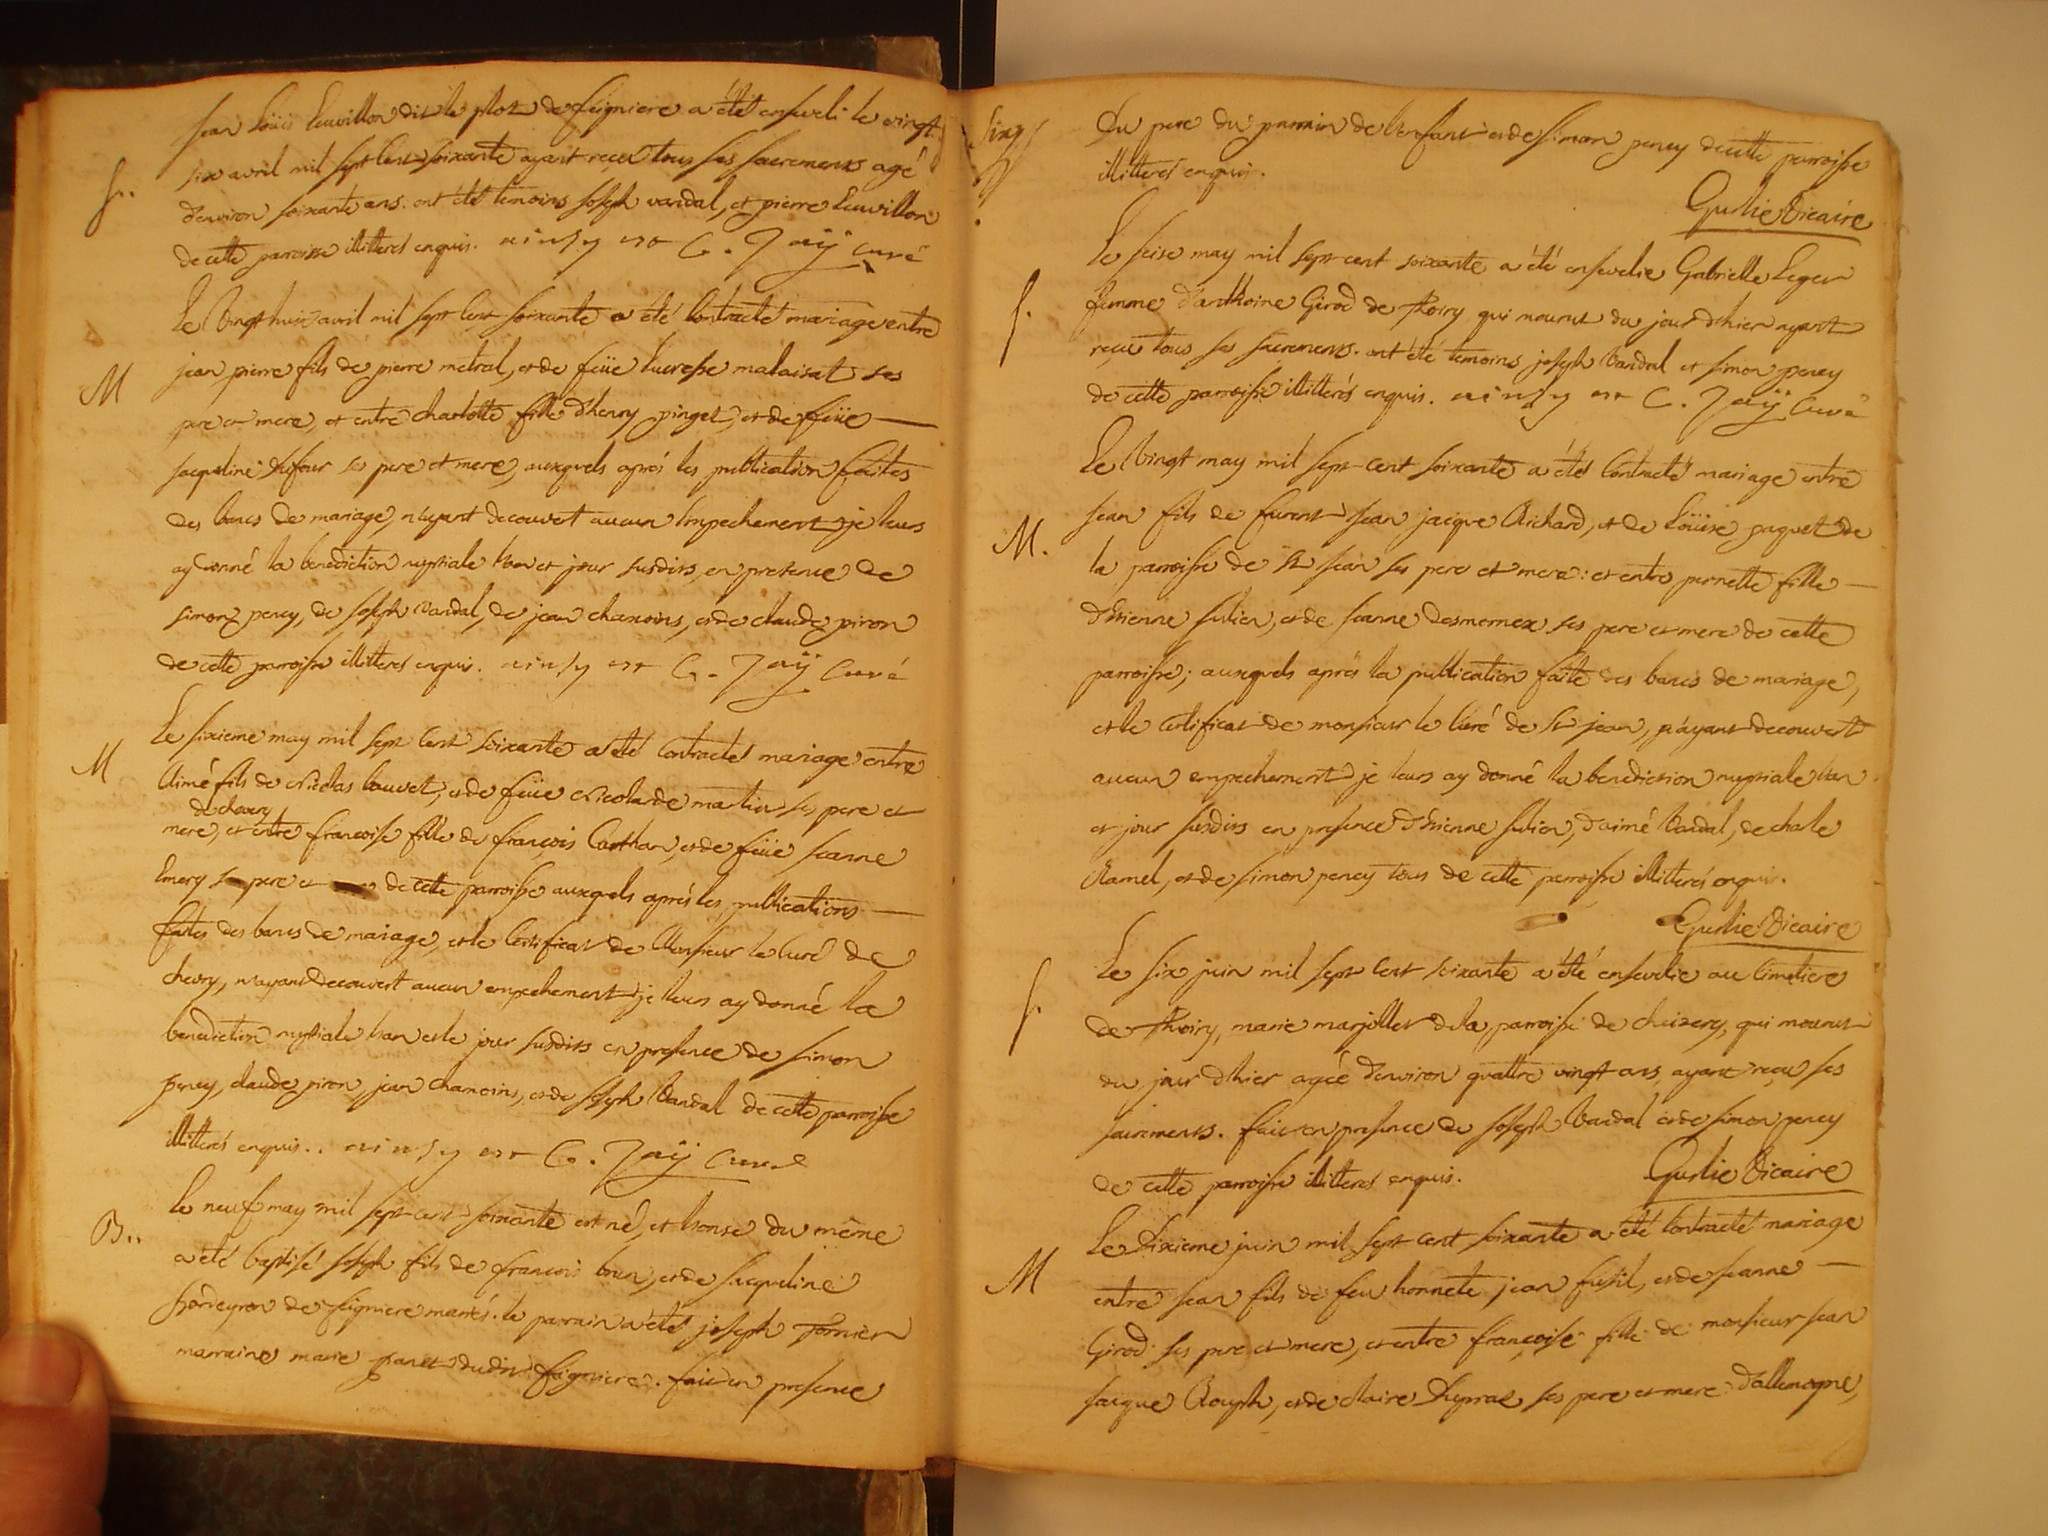 Jean Loüis Leuvillon dit le plot de feigniere a été enseveli le vingt
S..
six avril mil sept cent soixante ayant reçeu tous ses sacrements agé
d'environ soixante ans. ont été temoins Joseph vandal, et pierre Leuvillon
de cette paroisse illitterés enquis. ainsy est C. Jaÿ curé
Le Vingt huit avril mil sept cent soixante a été contracté mariage entre
M
jean pierre fils de pierre metral, et de feüe lucresse malaisat ses
pere et mere, et entre charlotte fille d'henry pinget, et de feüe
Jacqueline Dufour ses pere et mere, auxquels aprés les publication faites
des bancs de mariage, n'ayant decouvert aucun Impechement je leurs
ay donné la benediction nuptiale l'an et jour susdits, en presence de
simon peney, de Joseph Vandal, de jean chamoins, et de claude piron
de cette parroisse illitterés enquis. ainsy est C. Jaÿ Curé
Le sixieme may mil sept cent soixante a été contracté mariage entre
M
Aimé fils de Nicolas bouvet, et de feüe Nicolarde martin ses pere et
de chevry
mere, et entre francoise fille de françois Carthan, et de feüe Jeanne
Emery pere et de cette parroisse auxquels aprés les publications
faites des bancs de mariage, et le Certificat de Monsieur le curé de
chevry, n'ayant decouvert aucun empechement je leurs ay donné la
benediction nuptiale l'an et le jour susdits en presence de simon
peney, claude piron, jean chamoins, et de Joseph Vandal de cette parroisse
illitterés enquis.. ainsy est C. Jaÿ Curé
Le neuf may mil sept cent soixante est né, et l'onse du même
B..
a été baptisé Joseph fils de françois brun, et de Jacqueline
hordeyron de feigniere mariés. le parrain a été joseph fornier
marraine marie panet dudit feigniere. fait en presence
Du pere du parrain de l'enfant et de simon peney de cette parroisse
illitterés enquis.
Gurlie Vicaire
Le seise may mil sept cent soixante a été ensevelie Gabrielle Leger
S.
femme d'anthoine Girod de Thoiry qui mourut du jour d'hier ayant
reçeu tous ses sacrements. ont été temoins joseph Vandal et simon peney
de cette parroisse illitterés enquis. ainsy est C. Jaÿ Curé
Le Vingt may mil sept cent soixante a été Contracté mariage entre
M.
Jean fils de furent Jean jacque Richard, et de Loüise paquet de
la parroisse de st Jean ses pere et mere: et entre pernette fille
d'Etienne Julien, et de Jeanne desmornex ses pere et mere de cette
parroisse; auxquels aprés la publication faite des bancs de mariage,
et le certificat de monsieur le Curé de st jean, n'ayant decouvert
aucun empechement je leurs ay donné la benediction nuptiale l'an
et jour susdits en presence d'Etienne Julien, d'aimé Vandal, de charle
Ramel, et de simon peney tous de cette parroisse illitterés enquis.
Gurlie Vicaire
Le six juin mil sept cent soixante a été ensevelie au Cimetiere
S.
de Thoiry, marie marjollet de la parroisse de cheisery, qui mourut
du jour d'hier agée d'environ quattre vingt ans, ayant reçeu ses
sacrements. fait en presence de Joseph Vandal et de simon peney
de cette parroisse illitterés enquis. Gurlie Vicaire
Le Dixieme juin mil sept cent soixante a été Contracté mariage
M
entre Jean fils de feu honnete jean fusil, et de Jeanne
Girod ses pere et mere, et entre françoise fille de monsieur Jean
Jacque Rouph, et de claire Dupraz ses pere et mere d'allemogne,